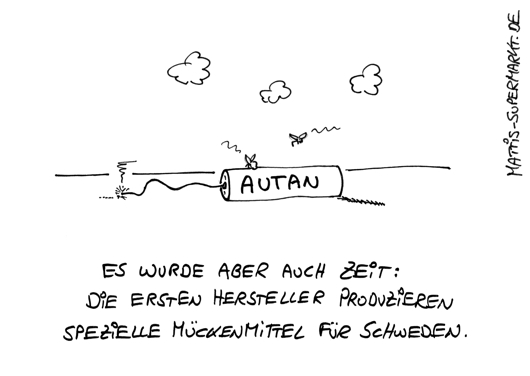 MATTIS-SUPERMARKT.DE
AUTAN
ES WURDE ABER AUCH ZEIT:
DIE ERSTEN HERSTELLER PRODUZIEREN
SPEZIELLE MÜCKENMITTEL FÜR SCHWEDEN.